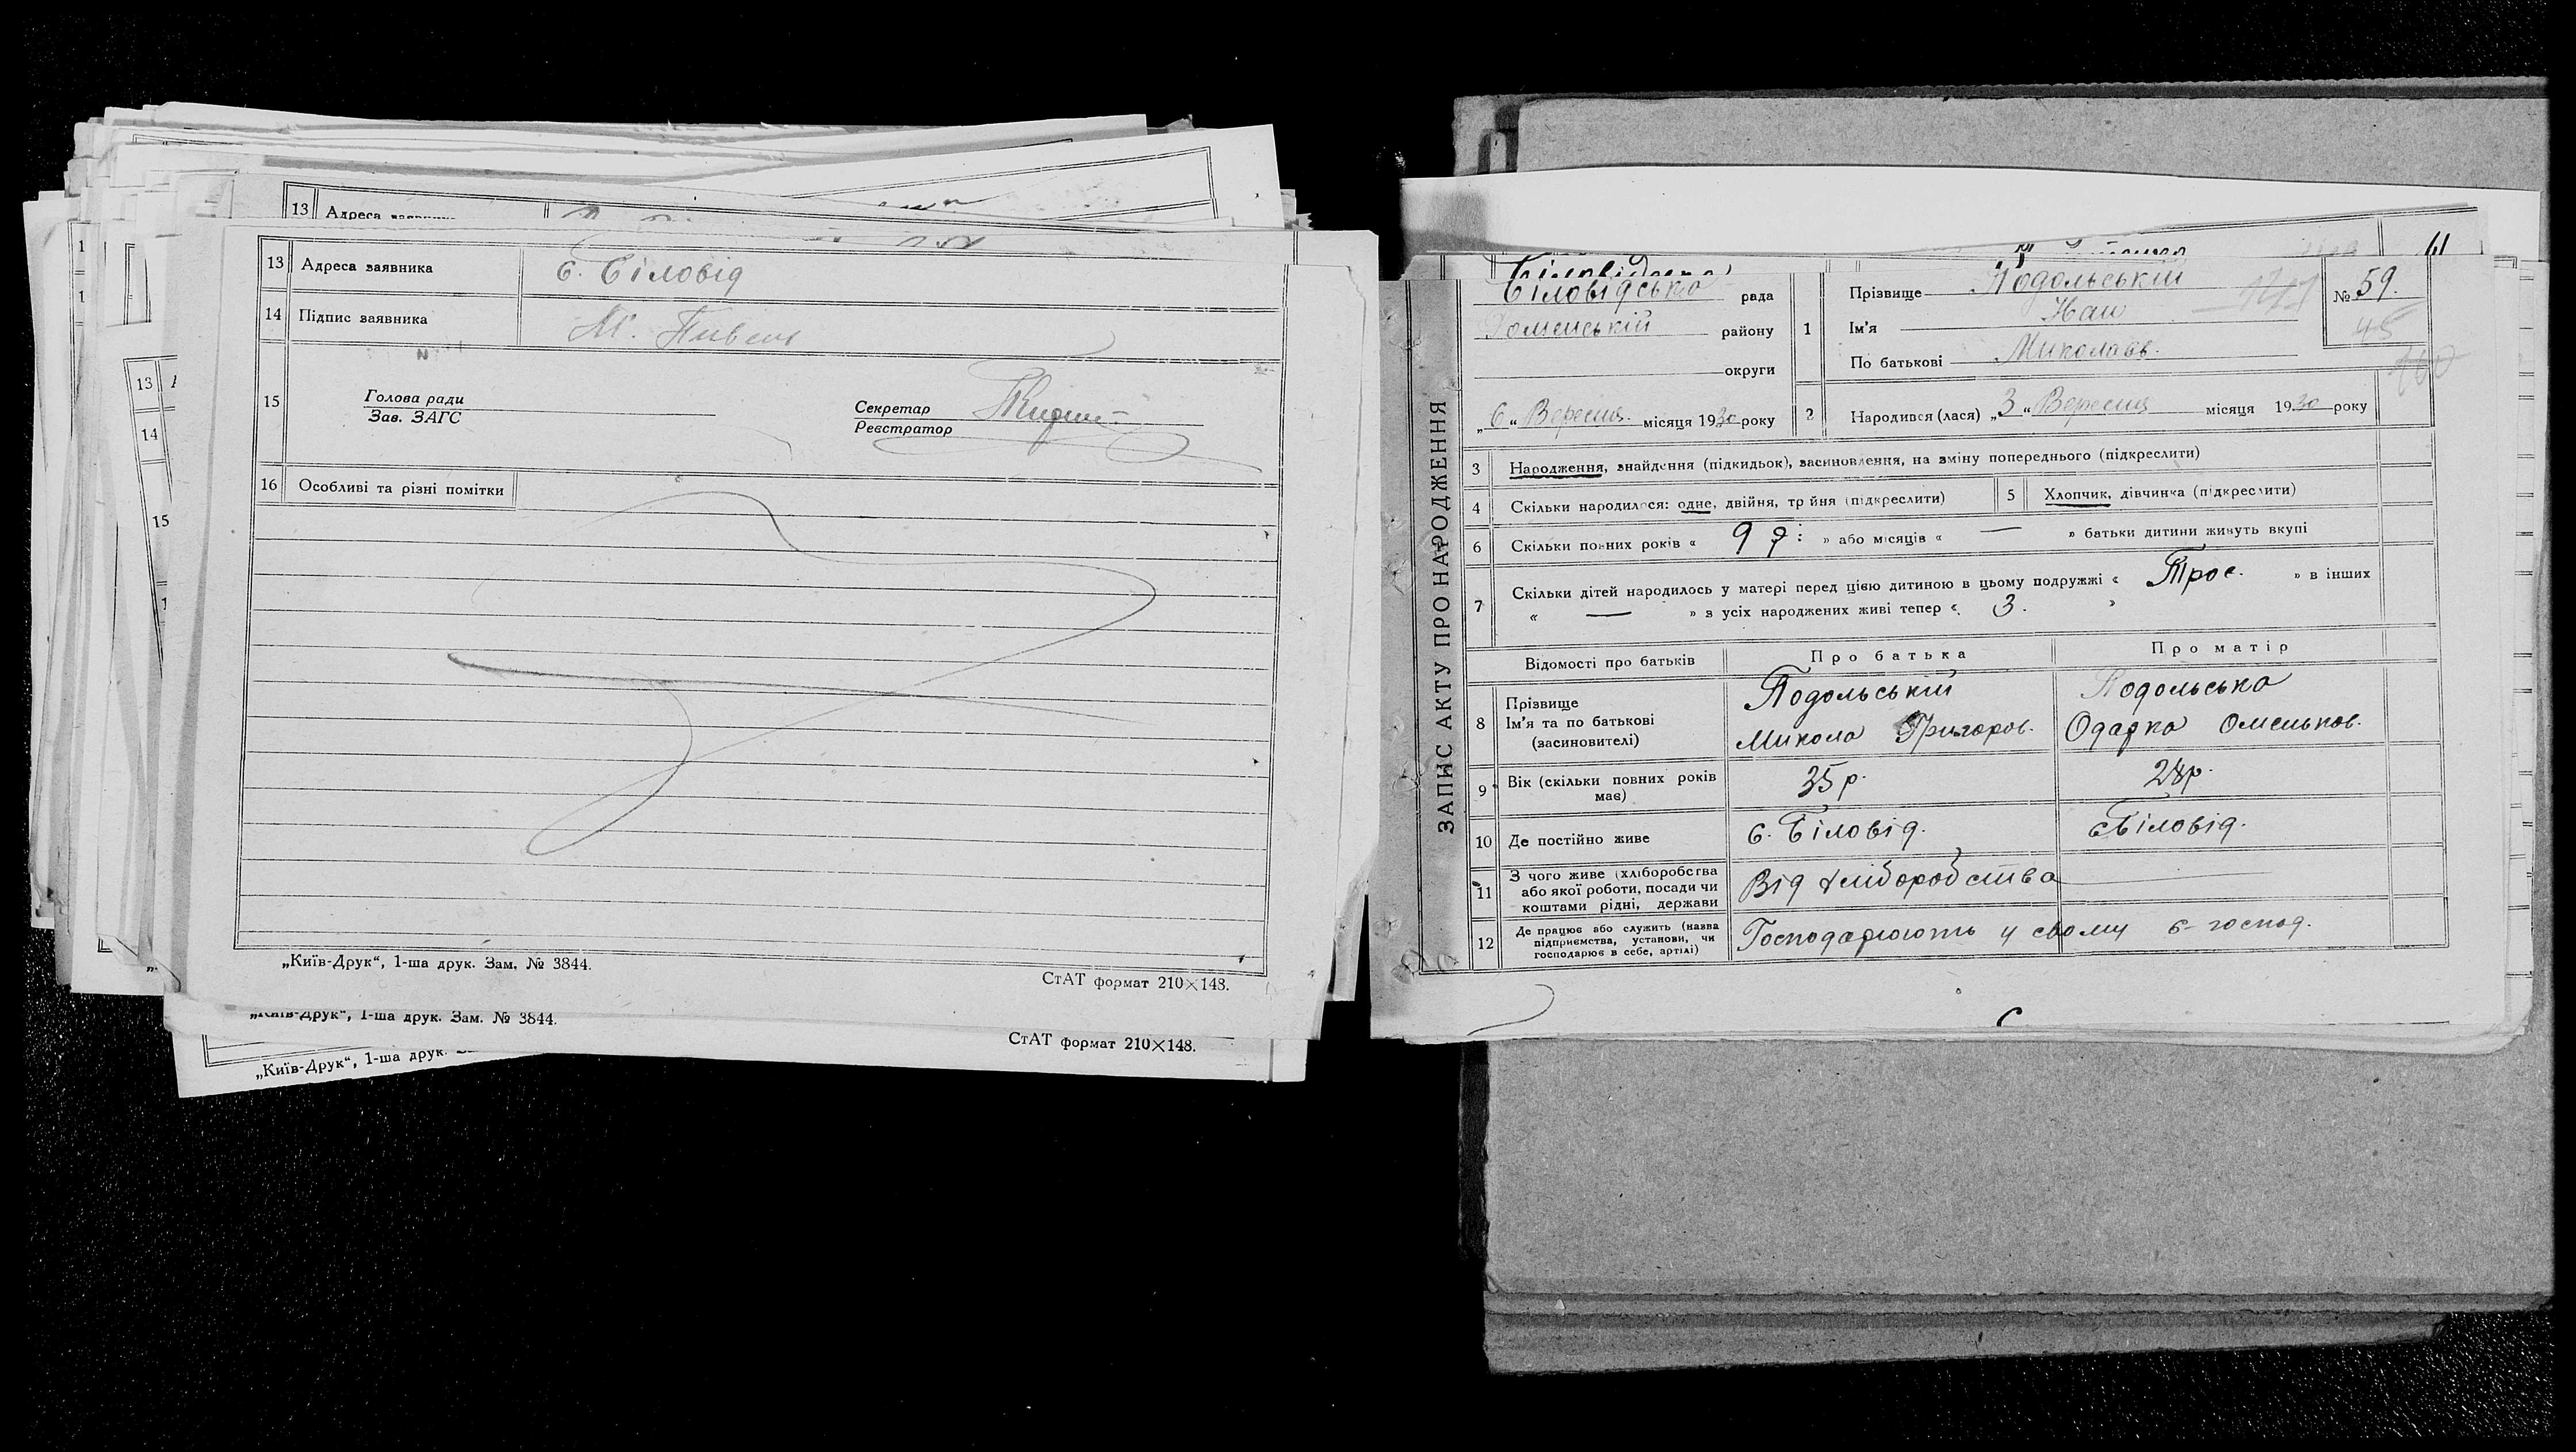 13 Адреса
13 Адреса заявника с. Біловід
14 Підпис заявника М. Пивень
15 Голова ради
Зав. ЗАГС
Секретар
Реєстратор
16 Особливі та різні помітки
„Київ-Друк“, 1-ша друк. Зам. № 3844.
СтАТ формат 210×148.
„Київ-Друк“, 1-ша друк. Зам. № 3844.
СтАТ формат 210×148.
„Київ-Друк“, 1-ша друк.
13
14
15
61
ЗАПИС АКТУ ПРО НАРОДЖЕННЯ
Біловідська рада
Роменській району
округи
„6“ Вересня місяця 1930 року
1 Прізвище Подольській
Ім'я Іван
По батькові Миколаєв.
№ 59.
45
2 Народився (лася) „3“ Вересня місяця 1930 року
3 Народження, знайдення (підкидьок), засиновлення, на зміну попереднього (підкреслити)
4 Скільки народилося: одне, двійня, трійня (підкреслити)
5 Хлопчик, дівчинка (підкреслити)
6 Скільки повних років « 9 р: » або місяців « — » батьки дитини живуть вкупі
7 Скільки дітей народилось у матері перед цією дитиною в цьому подружжі « Троє. » в інших
« — » з усіх народжених живі тепер « 3. »
Відомості про батьків Про батька Про матір
8 Прізвище Подольській Подольська
Ім'я та по батькові Микола Григоров. Одарка Омельков.
(засиновителі)
9 Вік (скільки повних років 35 р. 28 р.
має)
10 Де постійно живе с. Біловід. с Біловід.
11 З чого живе (хліборобства
або якої роботи, посади чи Від хліборобства
коштами рідні, держави
12 Де працює або служить (назва
підприємства, установи, чи Господарюють у свому с-господ.
господарює в себе, артілі)